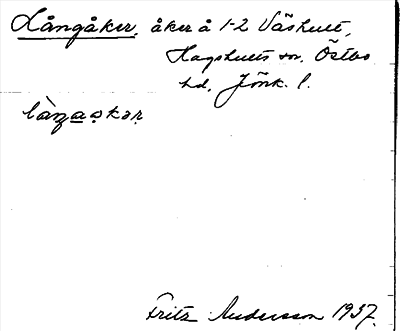 Långåker, åker å 1-2 Våshult,
Hagshults sn. Östbo
hd, Jönk. l.
làŋaskər
Fritz Andersson 1937.